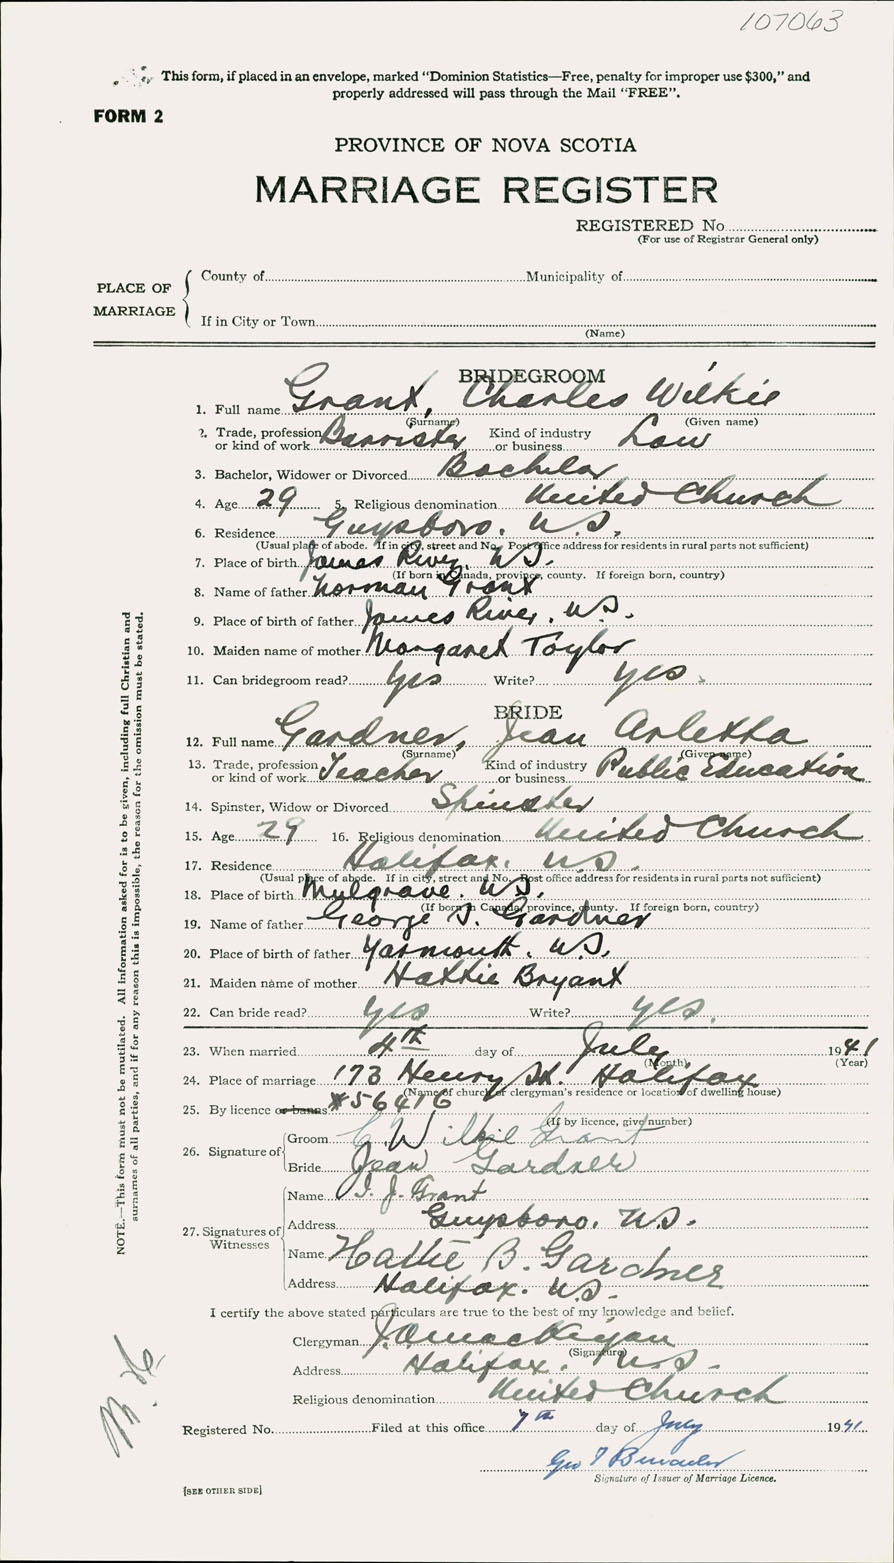 107063
This form, if placed in an envelope, marked “Dominion Statistics—Free, penalty for improper use $300,” and
properly addressed will pass through the Mail “FREE”.
FORM 2
PROVINCE OF NOVA SCOTIA
MARRIAGE REGISTER
REGISTERED No.
(For use of Registrar General only)
PLACE OF MARRIAGE
County of Municipality of
If in City or Town
(Name)
BRIDEGROOM
1. Full name Grant, Charles Wilkie
(Surname) (Given name)
2. Trade, profession or kind of work Barrister Kind of industry or business Law
3. Bachelor, Widower or Divorced Bachelor
4. Age 29 5. Religious denomination United Church
6. Residence Guysboro. N.S.
(Usual place of abode. If in city, street and No. Post office address for residents in rural parts not sufficient)
7. Place of birth James River, N.S.
(If born in Canada, province, county. If foreign born, country)
8. Name of father Norman Grant
9. Place of birth of father James River. N.S.
10. Maiden name of mother Margaret Taylor
11. Can bridegroom read? Yes Write? yes
BRIDE
12. Full name Gardner, Jean Arletta
(Surname) (Given name)
13. Trade, profession or kind of work Teacher Kind of industry or business Public Education
14. Spinster, Widow or Divorced Spinster
15. Age 29 16. Religious denomination United Church
17. Residence Halifax. N.S.
(Usual place of abode. If in city, street and No. Post office address for residents in rural parts not sufficient)
18. Place of birth Mulgrave. N.S.
(If born in Canada, province, county. If foreign born, country)
19. Name of father George J. Gardner
20. Place of birth of father Yarmouth. N.S.
21. Maiden name of mother Hattie Bryant
22. Can bride read? yes Write? yes.
23. When married 4th day of July 1941
(Month) (Year)
24. Place of marriage 173 Henry St. Halifax
(Name of church or clergyman’s residence or location of dwelling house)
25. By licence or banns #56416
(If by licence, give number)
26. Signature of
Groom C. Wilkie Grant
Bride Jean Gardner
27. Signatures of Witnesses
Name J. Grant
Address Guysboro. N.S.
Name Hattie B. Gardner
Address Halifax. N.S.
I certify the above stated particulars are true to the best of my knowledge and belief.
Clergyman
(Signature)
Address Halifax. N.S.
Religious denomination United Church
Registered No. Filed at this office 7th day of July 1941
Geo
Signature of Issuer of Marriage Licence.
[SEE OTHER SIDE]
NOTE.—This form must not be mutilated. All information asked for is to be given, including full Christian and
surnames of all parties, and if for any reason this is impossible, the reason for the omission must be stated.